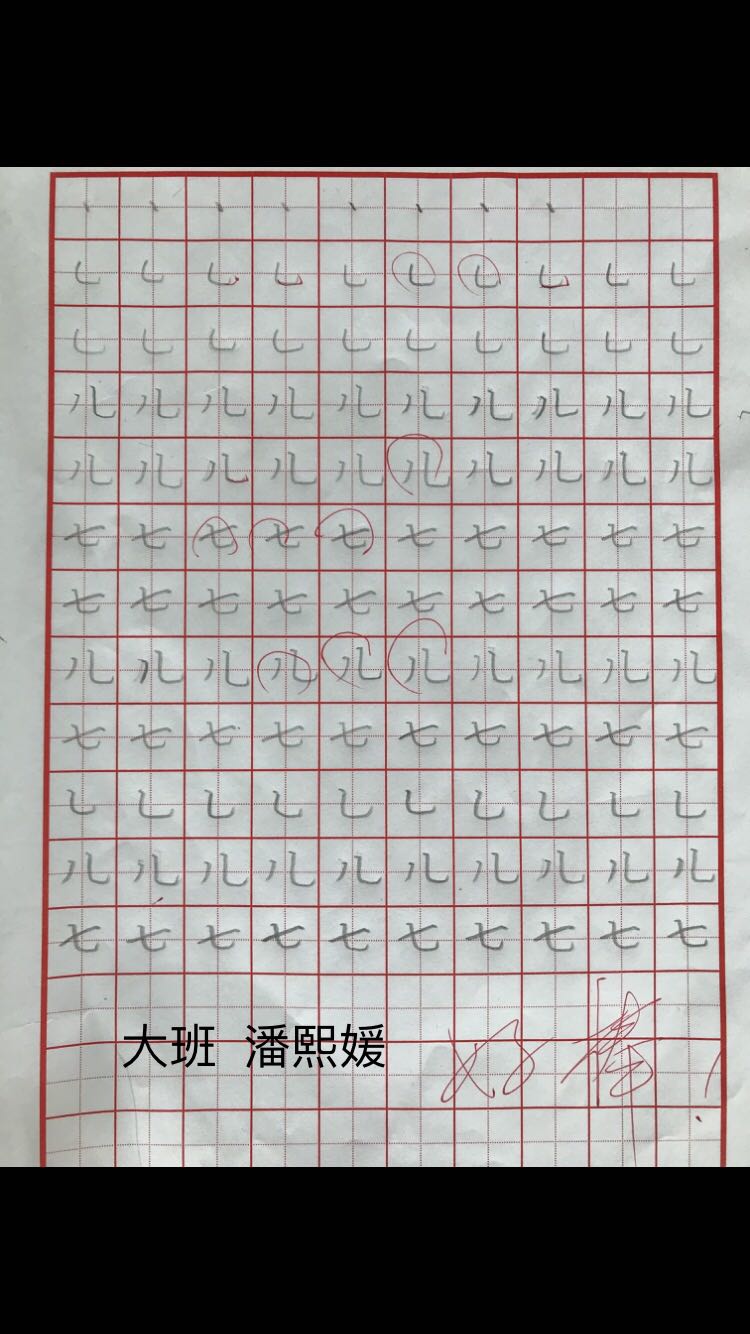 丶丶丶丶丶丶丶丶
乚乚乚乚乚乚乚乚乚乚
乚乚乚乚乚乚乚乚乚乚
儿儿儿儿儿儿儿儿儿儿
儿儿儿儿儿儿儿儿儿儿
七七七七七七七七七七
七七七七七七七七七七
儿儿儿儿儿儿儿儿儿儿
七七七七七七七七七七
乚乚乚乚乚乚乚乚乚乚
儿儿儿儿儿儿儿儿儿儿
七七七七七七七七七七
大班 潘熙媛
好棒!